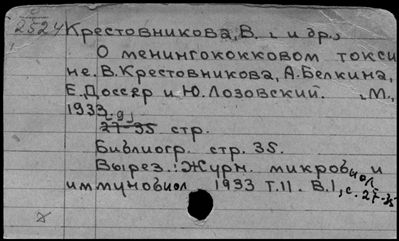 2524 Крестовникова, В. и др.,
О менингококковом токси
не. В. Крестовникова, А. Белкина,
Е. Доссер и Ю. Лозовский. М.,
1933 г.
27-35 стр.
Библиогр. стр. 35.
Вырез.: Журн. микробиол и
иммунобиол. 1933 Т.II. В.I, с. 27-35